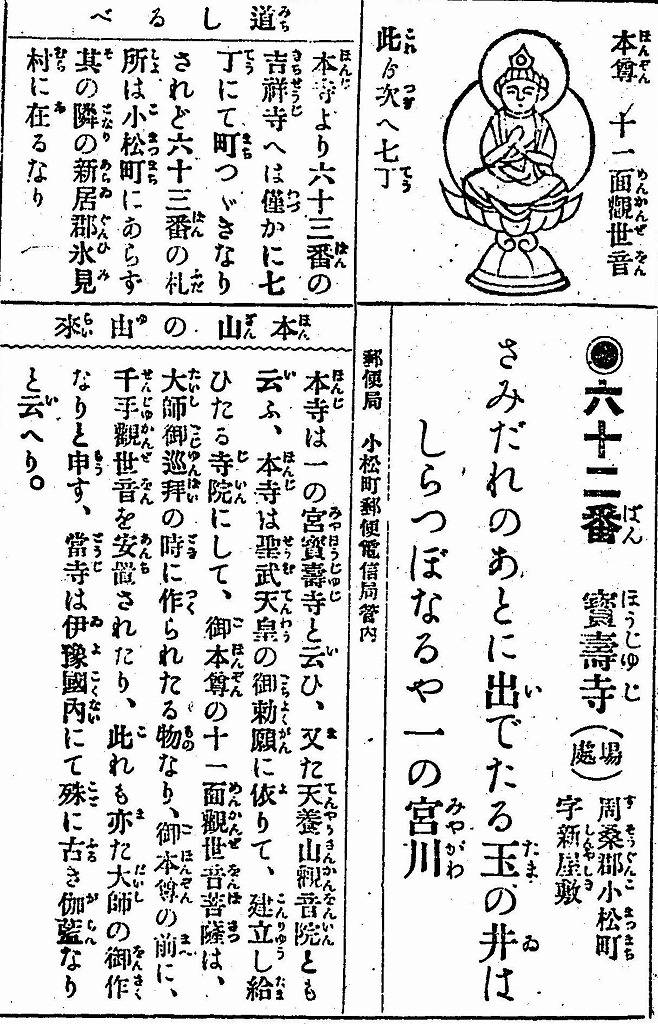 本尊 十一面觀世音
此ゟ次へ七丁
道しるべ
本寺より六十三番の
吉祥寺へは僅かに七
丁にて町つゞきなり
されど六十三番の札
所は小松町にあらず
其の隣の新居郡氷見
村に在るなり
六十二番 寶壽寺(場處) 周桑郡小松町
字新屋敷
さみだれのあとに出でたる玉の井は
しらつぼなるや一の宮川
郵便局 小松町郵便電信局管内
本山の由來
本寺は一の宮寶壽寺と云ひ、又た天養山觀音院とも
云ふ、本寺は聖武天皇の御勅願に依りて、建立し給
ひたる寺院にして、御本尊の十一面觀世音菩薩は、
大師御巡拜の時に作られたる物なり、御本尊の前に、
千手觀世音を安置されたり、此れも亦た大師の御作
なりと申す、當寺は伊豫國內にて殊に古き伽藍なり
と云へり。